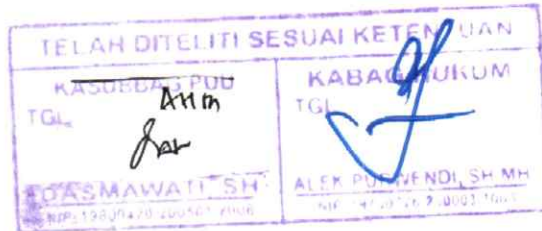 TELAH DITELITI SESUAI KETENTUAN
KASUBBAG PUU
TGL.
DASMAWATI, SH
KABAG HUKUM
TGL
ALEK PURWENDI, SH MH